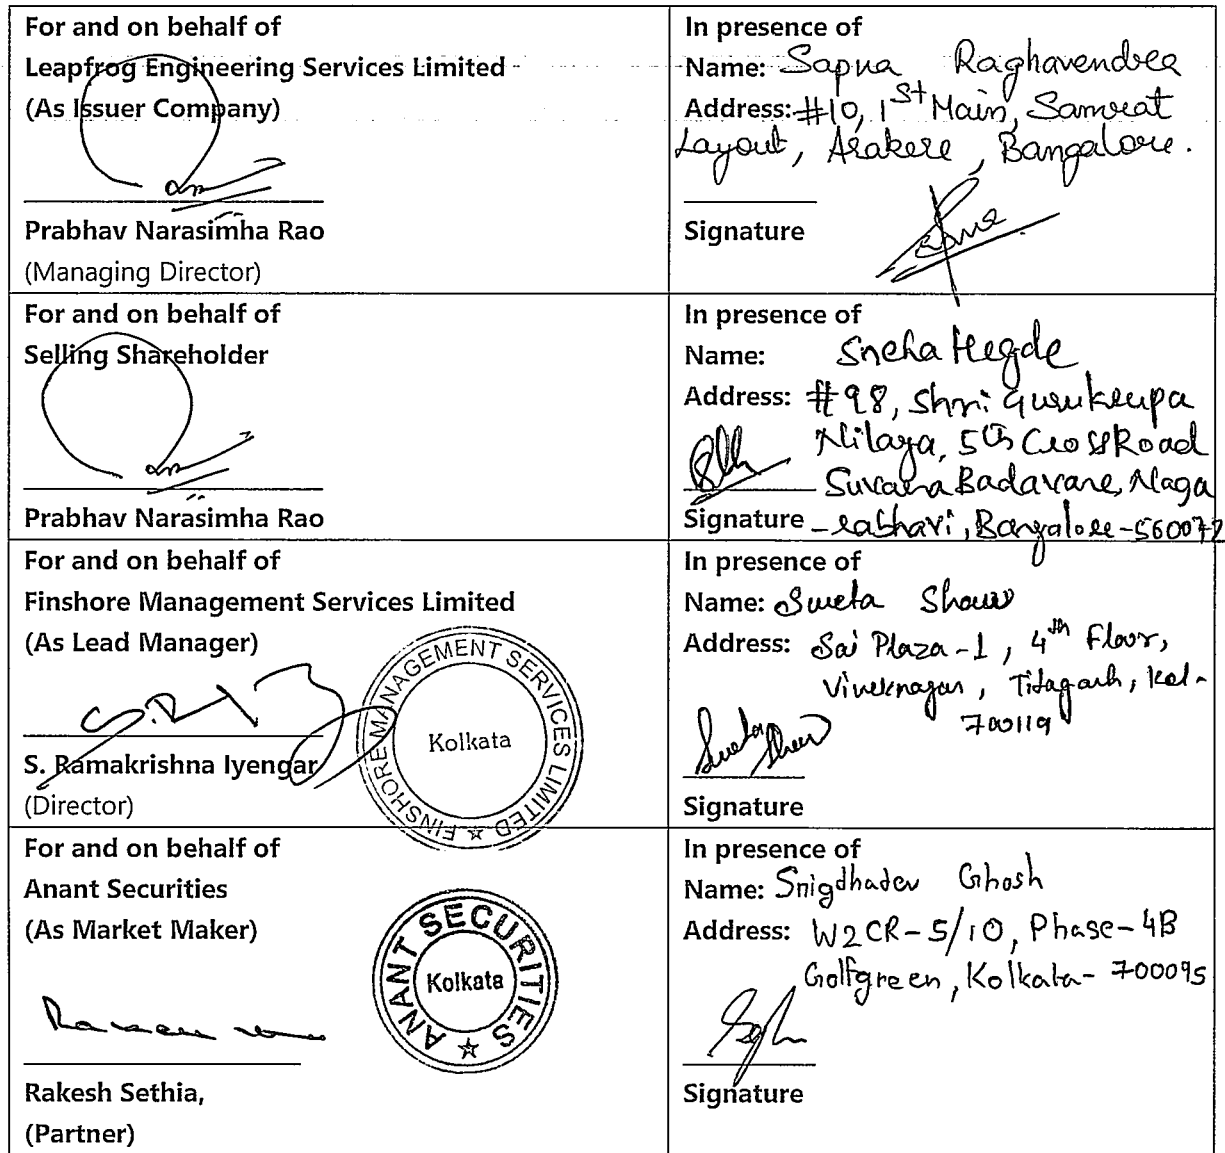 For and on behalf of
Leapfrog Engineering Services Limited
(As Issuer Company)
Prabhav Narasimha Rao
(Managing Director)
In presence of
Name: Sapna Raghavendra
Address: #10, 1st Main, Samrat
Layout, Arakere, Bangalore.
Signature
For and on behalf of
Selling Shareholder
Prabhav Narasimha Rao
In presence of
Name: Sneha Hegde
Address: #98, Shri Gurukrupa
Nilaya, 5th Cross Road
Badavane, Naga
Signature -rabhavi, Bangalore-560072
For and on behalf of
Finshore Management Services Limited
(As Lead Manager)
S. Ramakrishna Iyengar
(Director)
FINSHORE MANAGEMENT SERVICES LIMITED
Kolkata
In presence of
Name: Sweta Shaw
Address: Sai Plaza-1, 4th Floor,
Viveknagar, Titagarh, Kol-
700119
Sweta Shaw
Signature
For and on behalf of
Anant Securities
(As Market Maker)
ANANT SECURITIES
Kolkata
Rakesh Sethia,
(Partner)
In presence of
Name: Snigdhadev Ghosh
Address: W2CR-5/10, Phase-4B
Golfgreen, Kolkata-700095
Signature